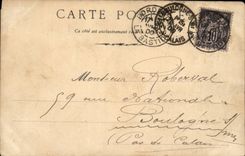 CARTE POS
Ce côté est exclusivement
BORD
BASTI
CALAIS
10
Monsieur Roberval
59 rue Nationale
Boulogne s/
mer
Pas de Calais